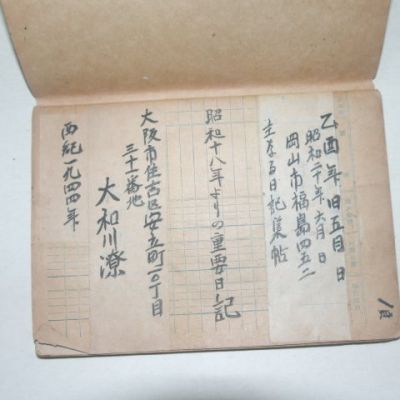 乙酉年旧五月 日
昭和二十年六月 日
岡山市福島四五二
主なる日記集帖
昭和十八年よりの重要日記
大阪市住吉区安立町一〇丁目
三十一番地
大和川潦
西紀一九四四年